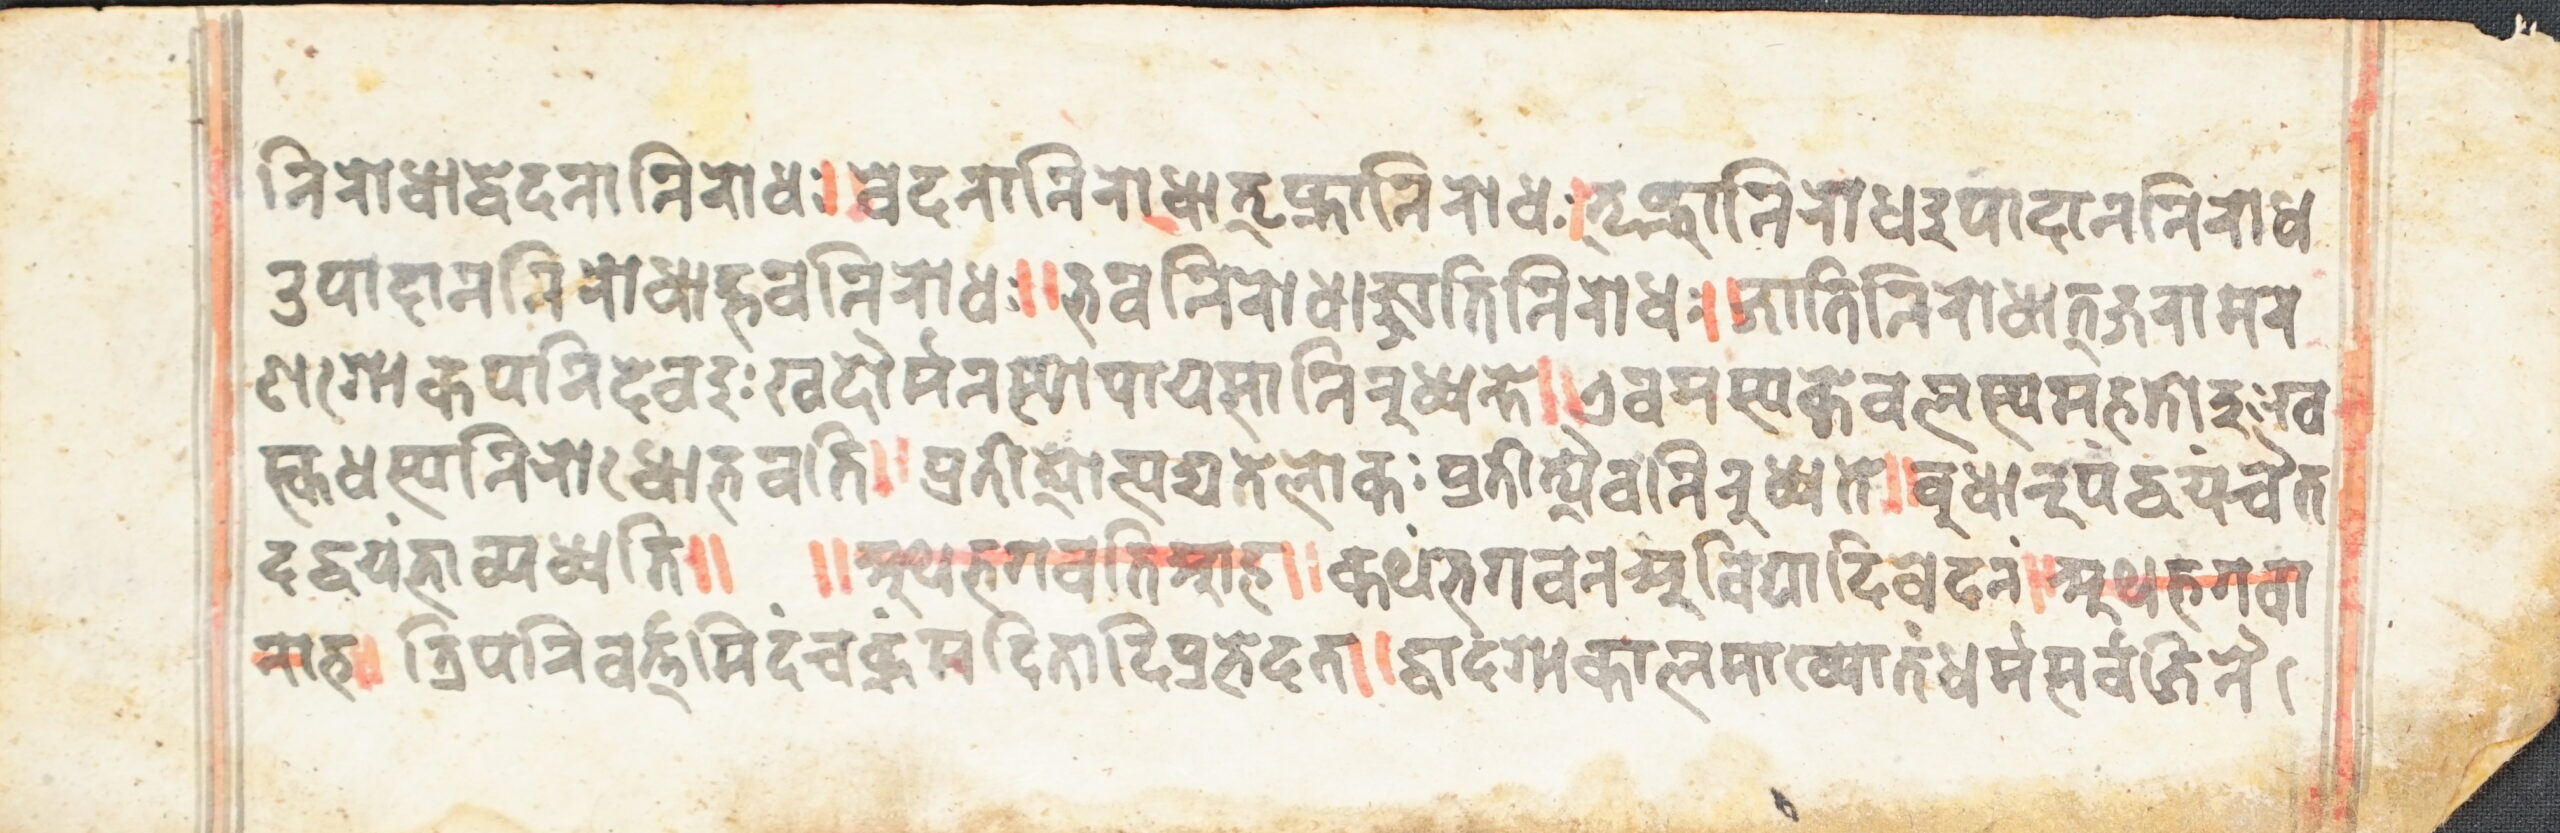 निरोधाद्वेदनानिरोधः। वेदनानिरोधात्तृष्णानिरोधः। तृष्णानिरोधदुपादाननिरोध
उपादाननिरोधाद्भवनिरोधः॥ भवनिरोधाज्जातिनिरोधः॥ जातिनिरोधात् जरामर
णशोकपरिदेवदुःखदौर्मनस्योपायसा निरुध्यन्ते॥ एवमस्य केवलस्य महतो दुःख
स्कन्धस्य निरोधो भवति॥ प्रतीत्योत्पद्यते लोकः प्रतीत्यैव निरुध्यते॥ बुधा रूपं द्वयं चैत
दद्वयं
॥ अथ भगवति आह॥ कथं भगवन अविद्यादि वेदनं॥ अथ भगवा
नाह॥ त्रिपरिवर्त्तमिदं चक्रं द्वादशाकालमाख्यातं धर्म सर्वजिनै